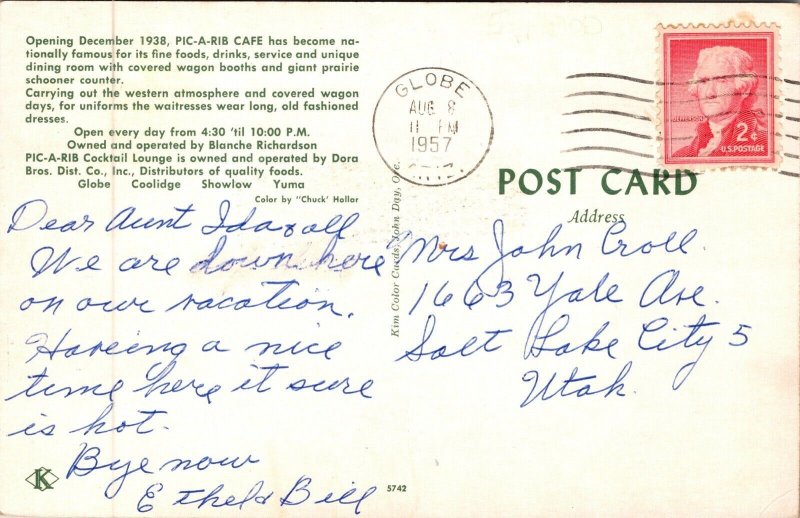 Opening December 1938, PIC-A-RIB CAFE has become na-
tionally famous for its fine foods, drinks, service and unique
dining room with covered wagon booths and giant prairie
schooner counter.
Carrying out the western atmosphere and covered wagon
days, for uniforms the waitresses wear long, old fashioned
dresses.
Open every day from 4:30 'til 10:00 P.M.
Owned and operated by Blanche Richardson
PIC-A-RIB Cocktail Lounge is owned and operated by Dora
Bros. Dist. Co., Inc., Distributors of quality foods.
Globe Coolidge Showlow Yuma
Color by "Chuck' Hallor
Dear Aunt Ida & all
We are down here
on our vacation.
Haveing a nice
time here it sure
is hot.
Bye now
Ethel & Bill
K
5742
Kim Color Cards, John Day, Ore.
GLOBE
AUG 8
11 PM
1957
ARIZ.
JEFFERSON
2¢
U.S. POSTAGE
POST CARD
Address
Mrs John Croll.
1663 Yale Ave.
Salt Lake City 5
Utah.